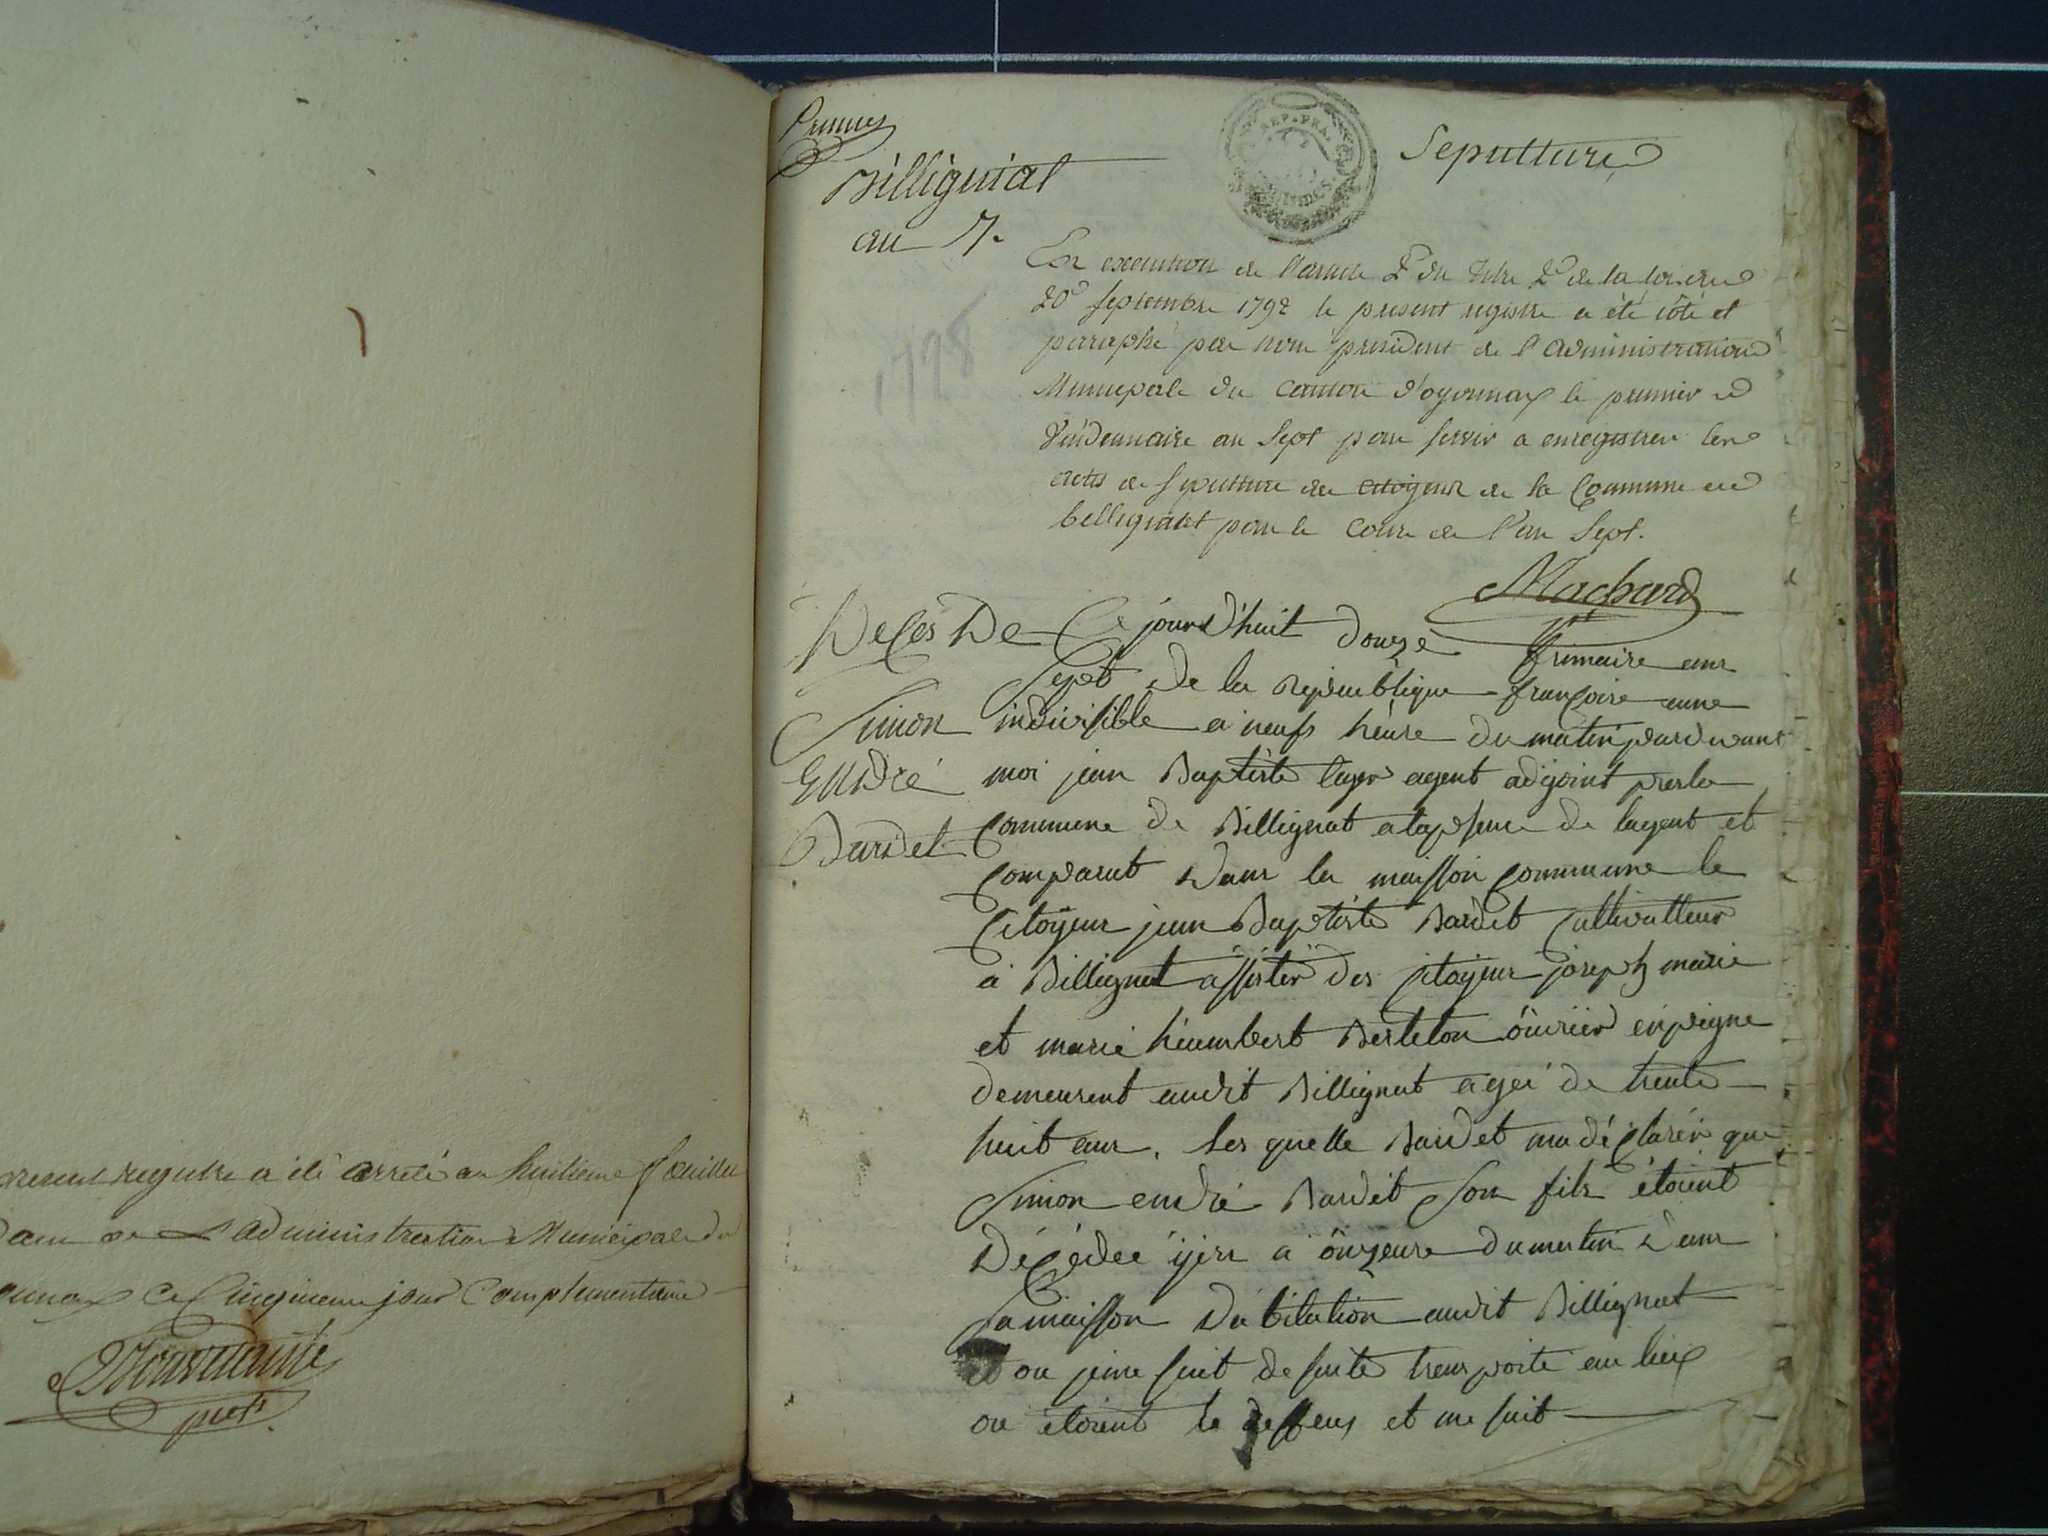 present registre a été arreté au huitieme feuillet
L'administration Municipale du
ce Cinquieme jour Complementaire
prest
Premier
Billigniat
an 7.
REP. FRA.
Sepulture
1798
En execution de l'article 2e du titre 2e de la loi du
20e septembre 1792 le present registre a été côté et
paraphé par nous president de l'administration
Municipale du canton d'oyonnax le premier
Vendemiaire an sept pour servir a enregistrer les
actes de sepulture des citoyens de la Commune de
belligniat pour le cour de l'an sept.
Machard
Decés De
Simon
Endré
Bardet
Ce jourd'huit douze frimaire ans
sept de la republique françoise une
indivisible a neufs heure du matin pardevant
moi jean Baptiste agent adjoint pres la
Commune de Billignat a lapsence de lagent et
Comparut dans la maisson Commune le
Citoyen jean Baptiste Bardet Cultivatteur
a Billignat assister des Citoyens joseph marie
et marie heumbert Berteton ouvrier enpeigne
demeurent audit Billignat agei de trente
huit ans, les quelle Bardet ma déClarér que
Simon endré Bardet Son fils étoient
DéCédee ÿier a ônzeure du matin Dans
sa maisson Dabitation audit Billignat
ou jeme suit de suite transporté au lieux
ou étoient le desseus et me suit